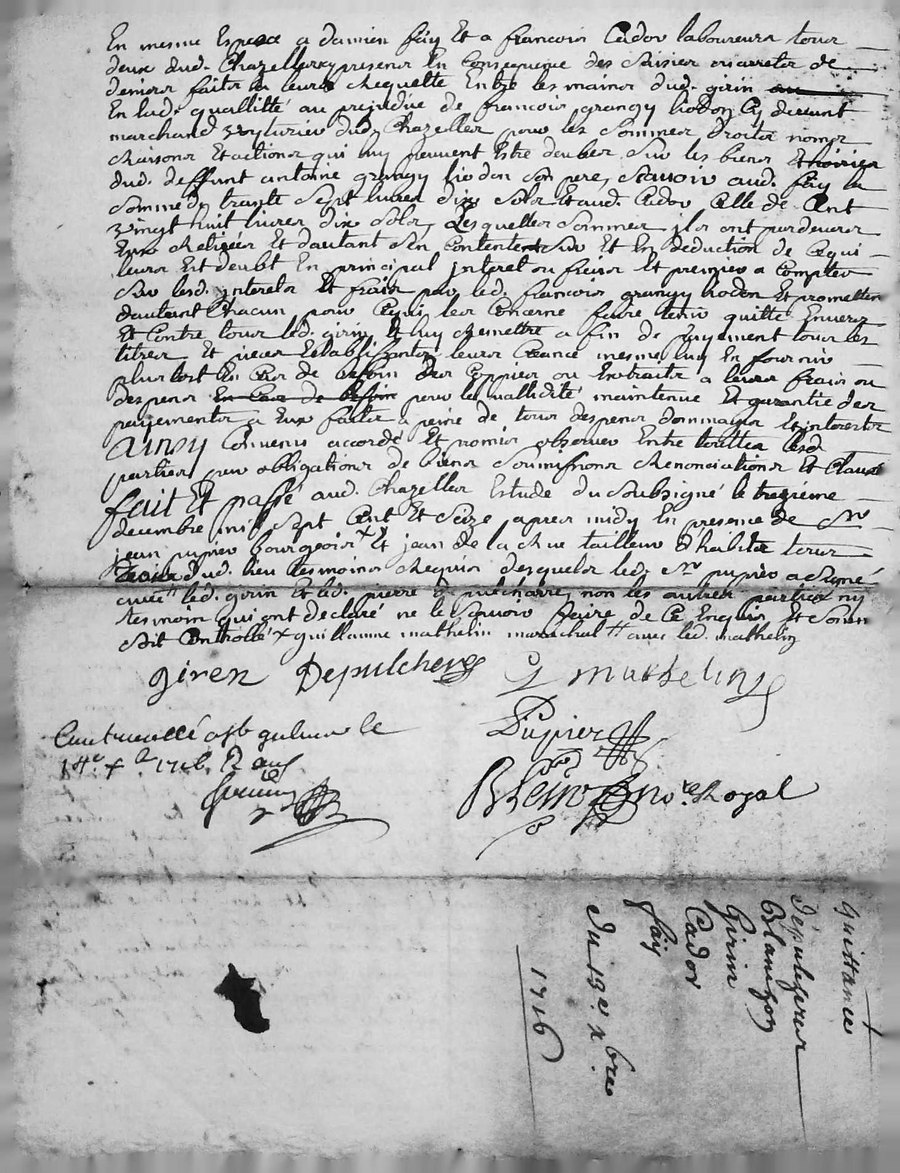 En mesme Espece a damien faÿ Et a francois Cador laboureurs tous
deux dud. Chazelles cy presens En Consequence des Saisies ou arrets de
deniers faits a leurs Requette Entre les mains dud. girin
En lad. quallitté au prejudice de francois grangy hodon Cy devant
marchand dud. Chazelles pour les Sommes droits noms
Raisons Et actions qui luy peuvent Estre deubes Sur les biens
dud. deffunt antoine grangy hodon Son pere, Scavoir aud. faÿ la
Somme de trante Sept livres dix Sols Et aud. Cador Celle de Cent
vingt huit livres dix Sols, Lesquelles Sommes ils ont pardevers
Eux Retirées Et dautant Sen Contentent Et En deduction de Ce qui
leurs Est deubt En principal interet ou frais Et premier a Compter
Sur lesd. interets Et frais par led. francois grangy hodon Et promettent
dautant Chacun pour Ce qui les Concerne faire tenir quitte Envers
Et Contre tous led. girin Et luy Remettre a fin de payement tous les
titres Et pieces Establissants leurs Creance mesme luy En fournir
plus tost En Cas de besoin des Coppies ou Extraits a leurs frais ou
despens En Cas de besoin pour la validité maintenue Et garantie des
payements a Eux faits a peine de tous despens dommages Et interests
Ainsy Convenu accordé Et promis observer Entre touttes lesd.
parties par obligations de biens Soumissions Renonciations Et Clauses
fait Et passé aud. Chazelles Estude du Soubsigné le treizieme
decembre mil Sept Cent Et Seize apres midy En presence de Sr
jean pupier bourgeois x Et jean de la Rue tailleur d'habits tous
dud. lieu tesmoins Requis desquels led. Sr pupier a Signé
avec led. girin Et led. pierre non les autres parties ny
tesmoin qui ont declaré ne le Scavoir faire de Ce Enquis Et Soient
Soit Controllé x guillaume mathelin marechal # avec led. mathelin
giren Depulcheres G mathelin
Pupier
no.re Royal
Controllé a St galmier le
14e xbre 1716. R
quittance
Depulcheres
Blanchon
Girin
Cador
faÿ
du 13e xbre
1716